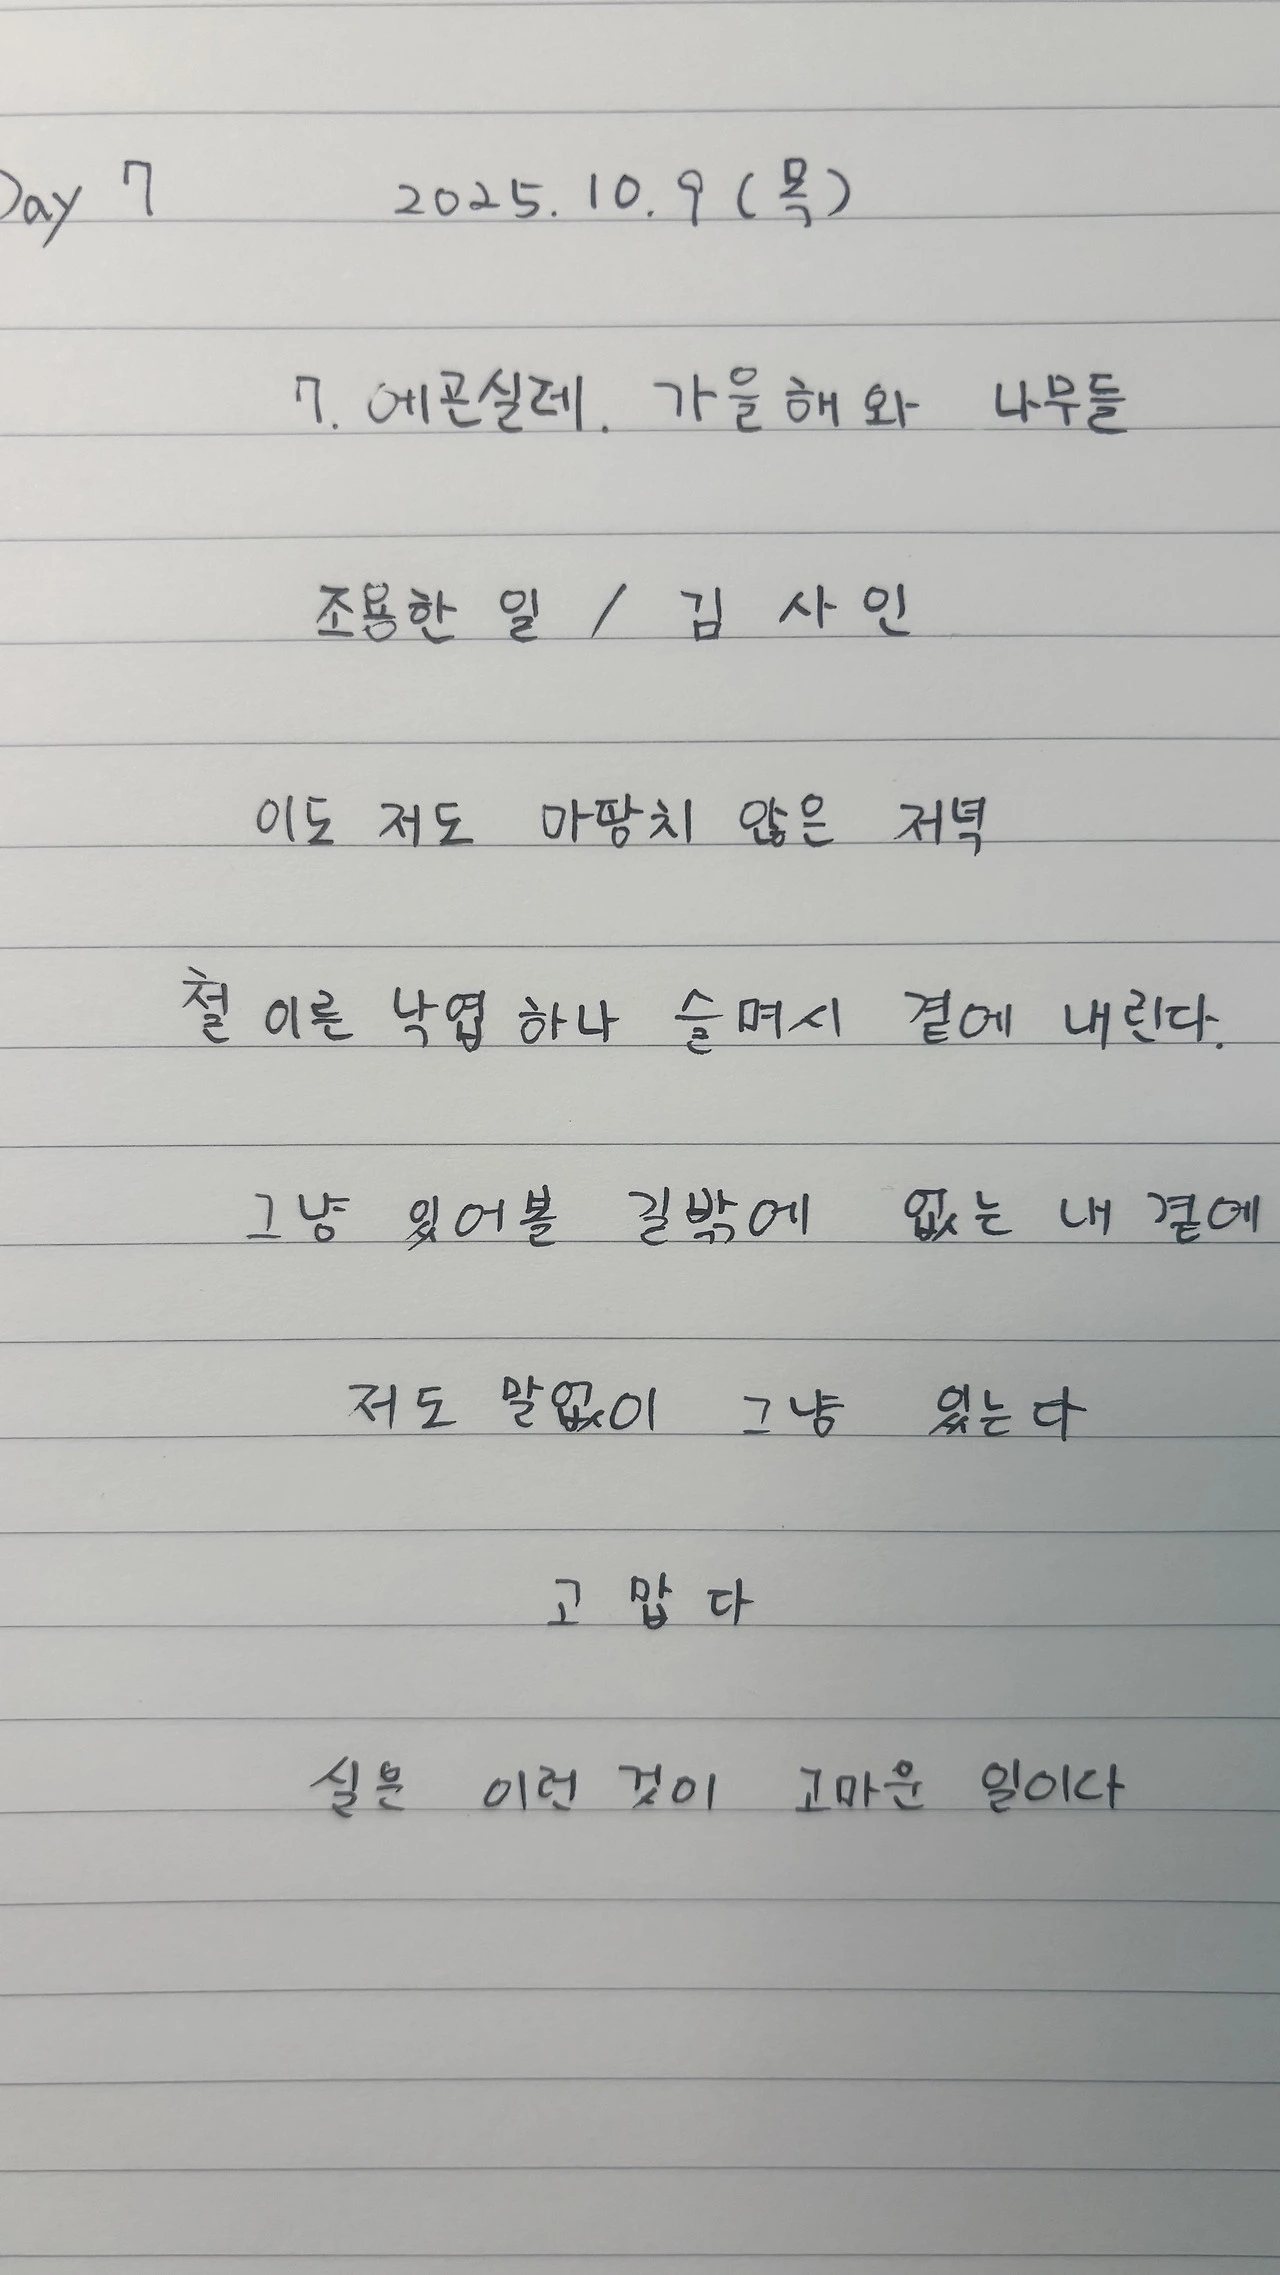 Day 7 2025. 10. 9 (목)
7. 에곤실레. 가을해와 나무들
조용한 일 / 김 사 인
이도 저도 마팡치 않은 저녁
철 이른 낙엽 하나 슬며시 곁에 내린다.
그냥 있어볼 길밖에 없는 내 곁에
저도 말없이 그냥 있는다
고 맙 다
실은 이런 것이 고마운 일이다